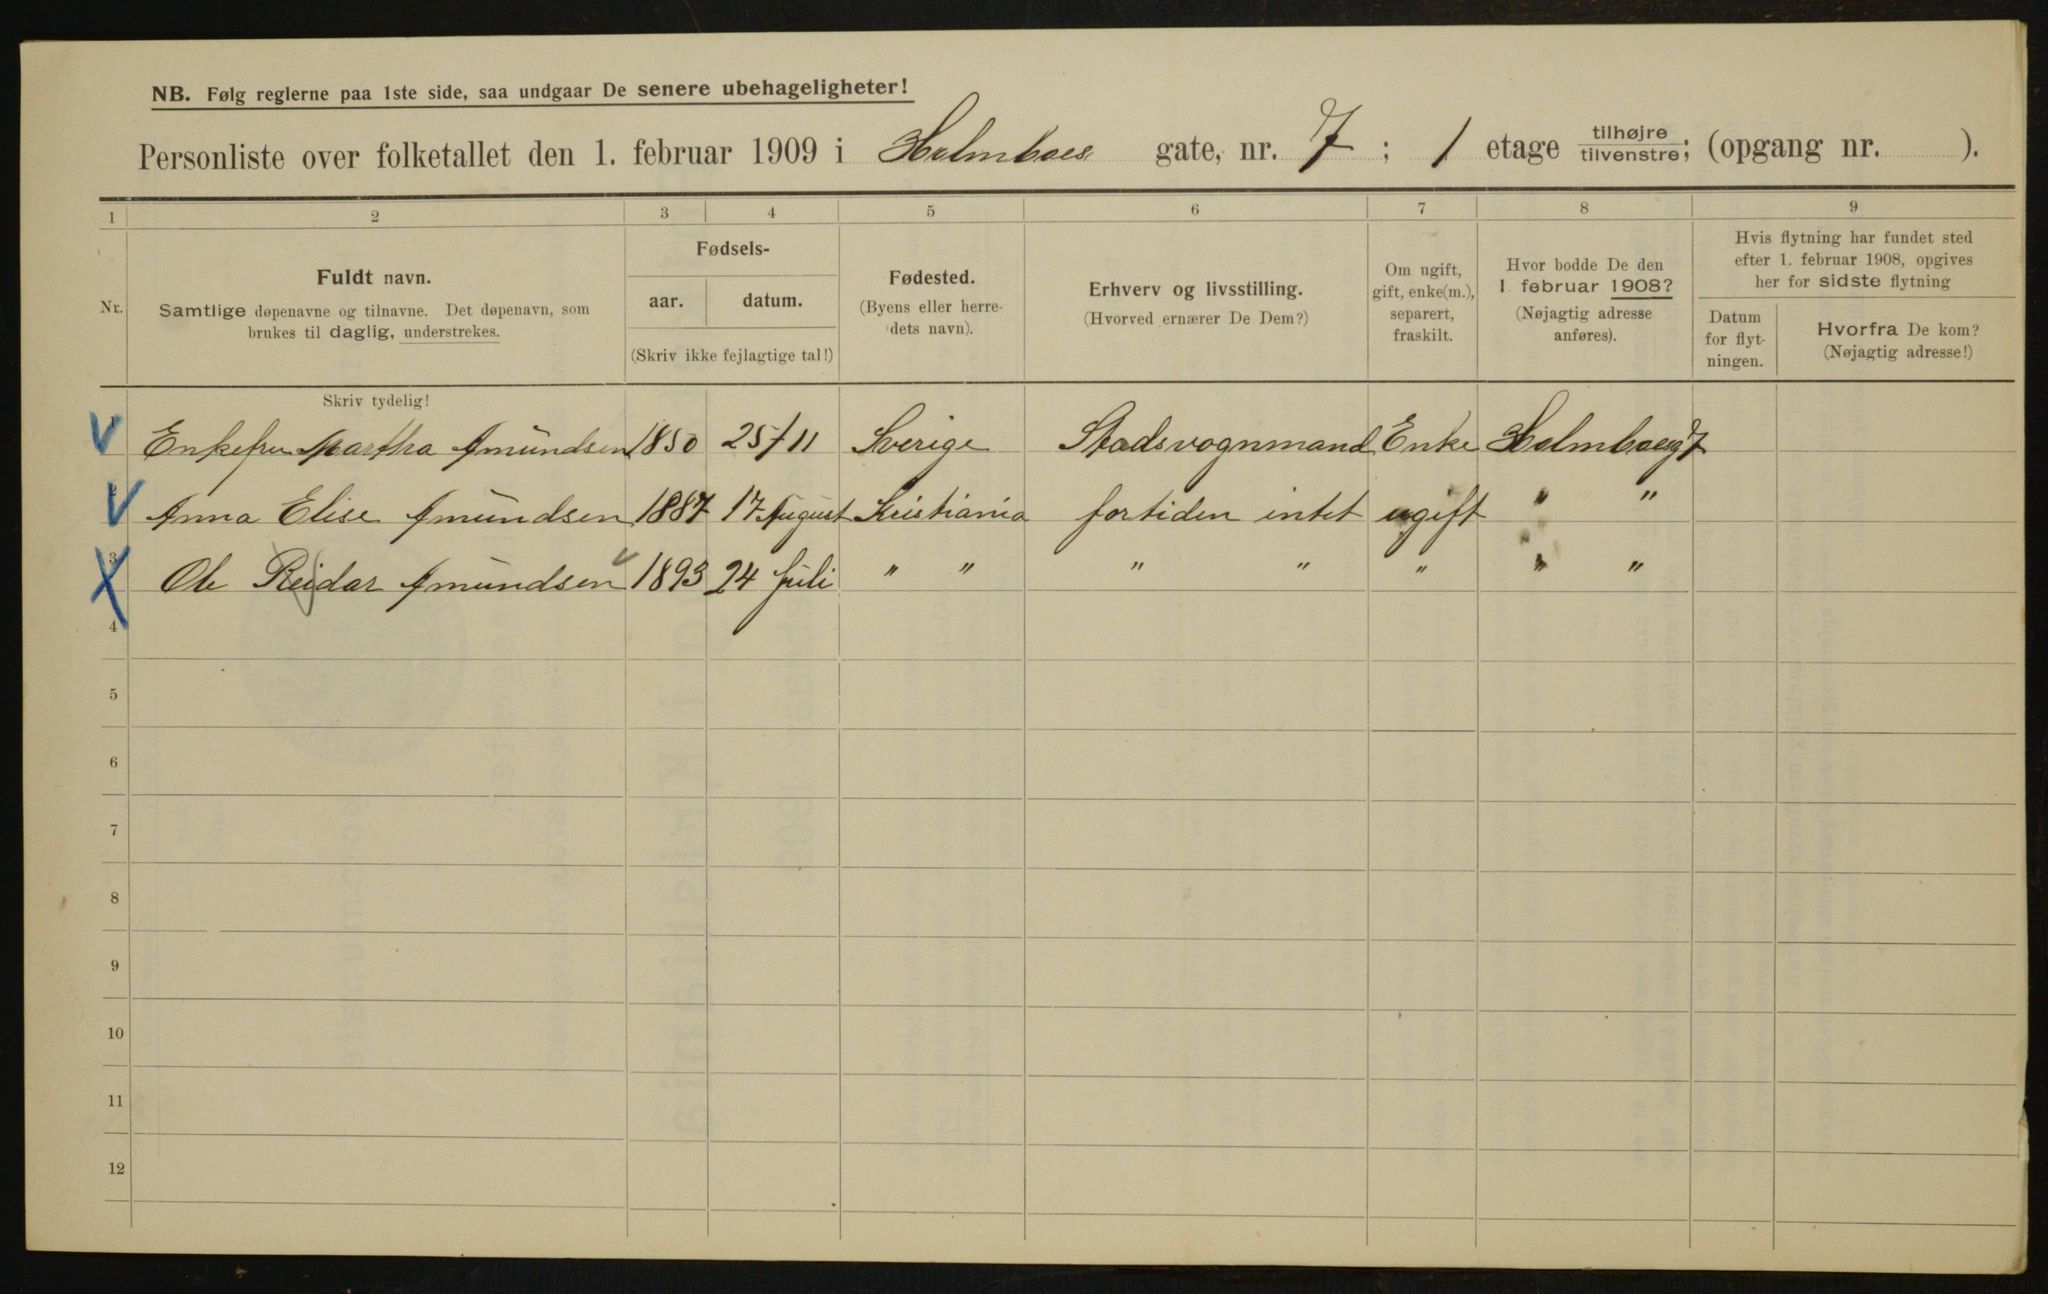 NB. Følg reglerne paa 1ste side, saa undgaar De senere ubehageligheter!
Personliste over folketallet den 1. februar 1909 i Holmboes gate, nr. 7 ; 1 etage tilhøjre tilvenstre; (opgang nr. ).
1 2 3 4 5 6 7 8 9
Nr.
Fuldt navn.
Samtlige døpenavne og tilnavne. Det døpenavn, som
brukes til daglig, understrekes.
Fødsels-
aar. datum.
(Skriv ikke fejlagtige tal!)
Fødested.
(Byens eller herre-
dets navn).
Erhverv og livsstilling.
(Hvorved ernærer De Dem?)
Om ugift,
gift, enke(m.),
separert,
fraskilt.
Hvor bodde De den
1 februar 1908?
(Nøjagtig adresse
anføres).
Hvis flytning har fundet sted
efter 1. februar 1908, opgives
her for sidste flytning
Datum
for flyt-
ningen.
Hvorfra De kom?
(Nøjagtig adresse!)
Skriv tydelig!
Enkefru Martha Amundsen 1850 25/11 Sverige Stadsvognmand Enke Holmboesg 7
Anna Elise Amundsen 1887 17 August Kristiania fortiden intet ugift " "
3 Ole Reidar Amundsen 1893 24 Juli " " " " " " "
4
5
6
7
8
9
10
11
12